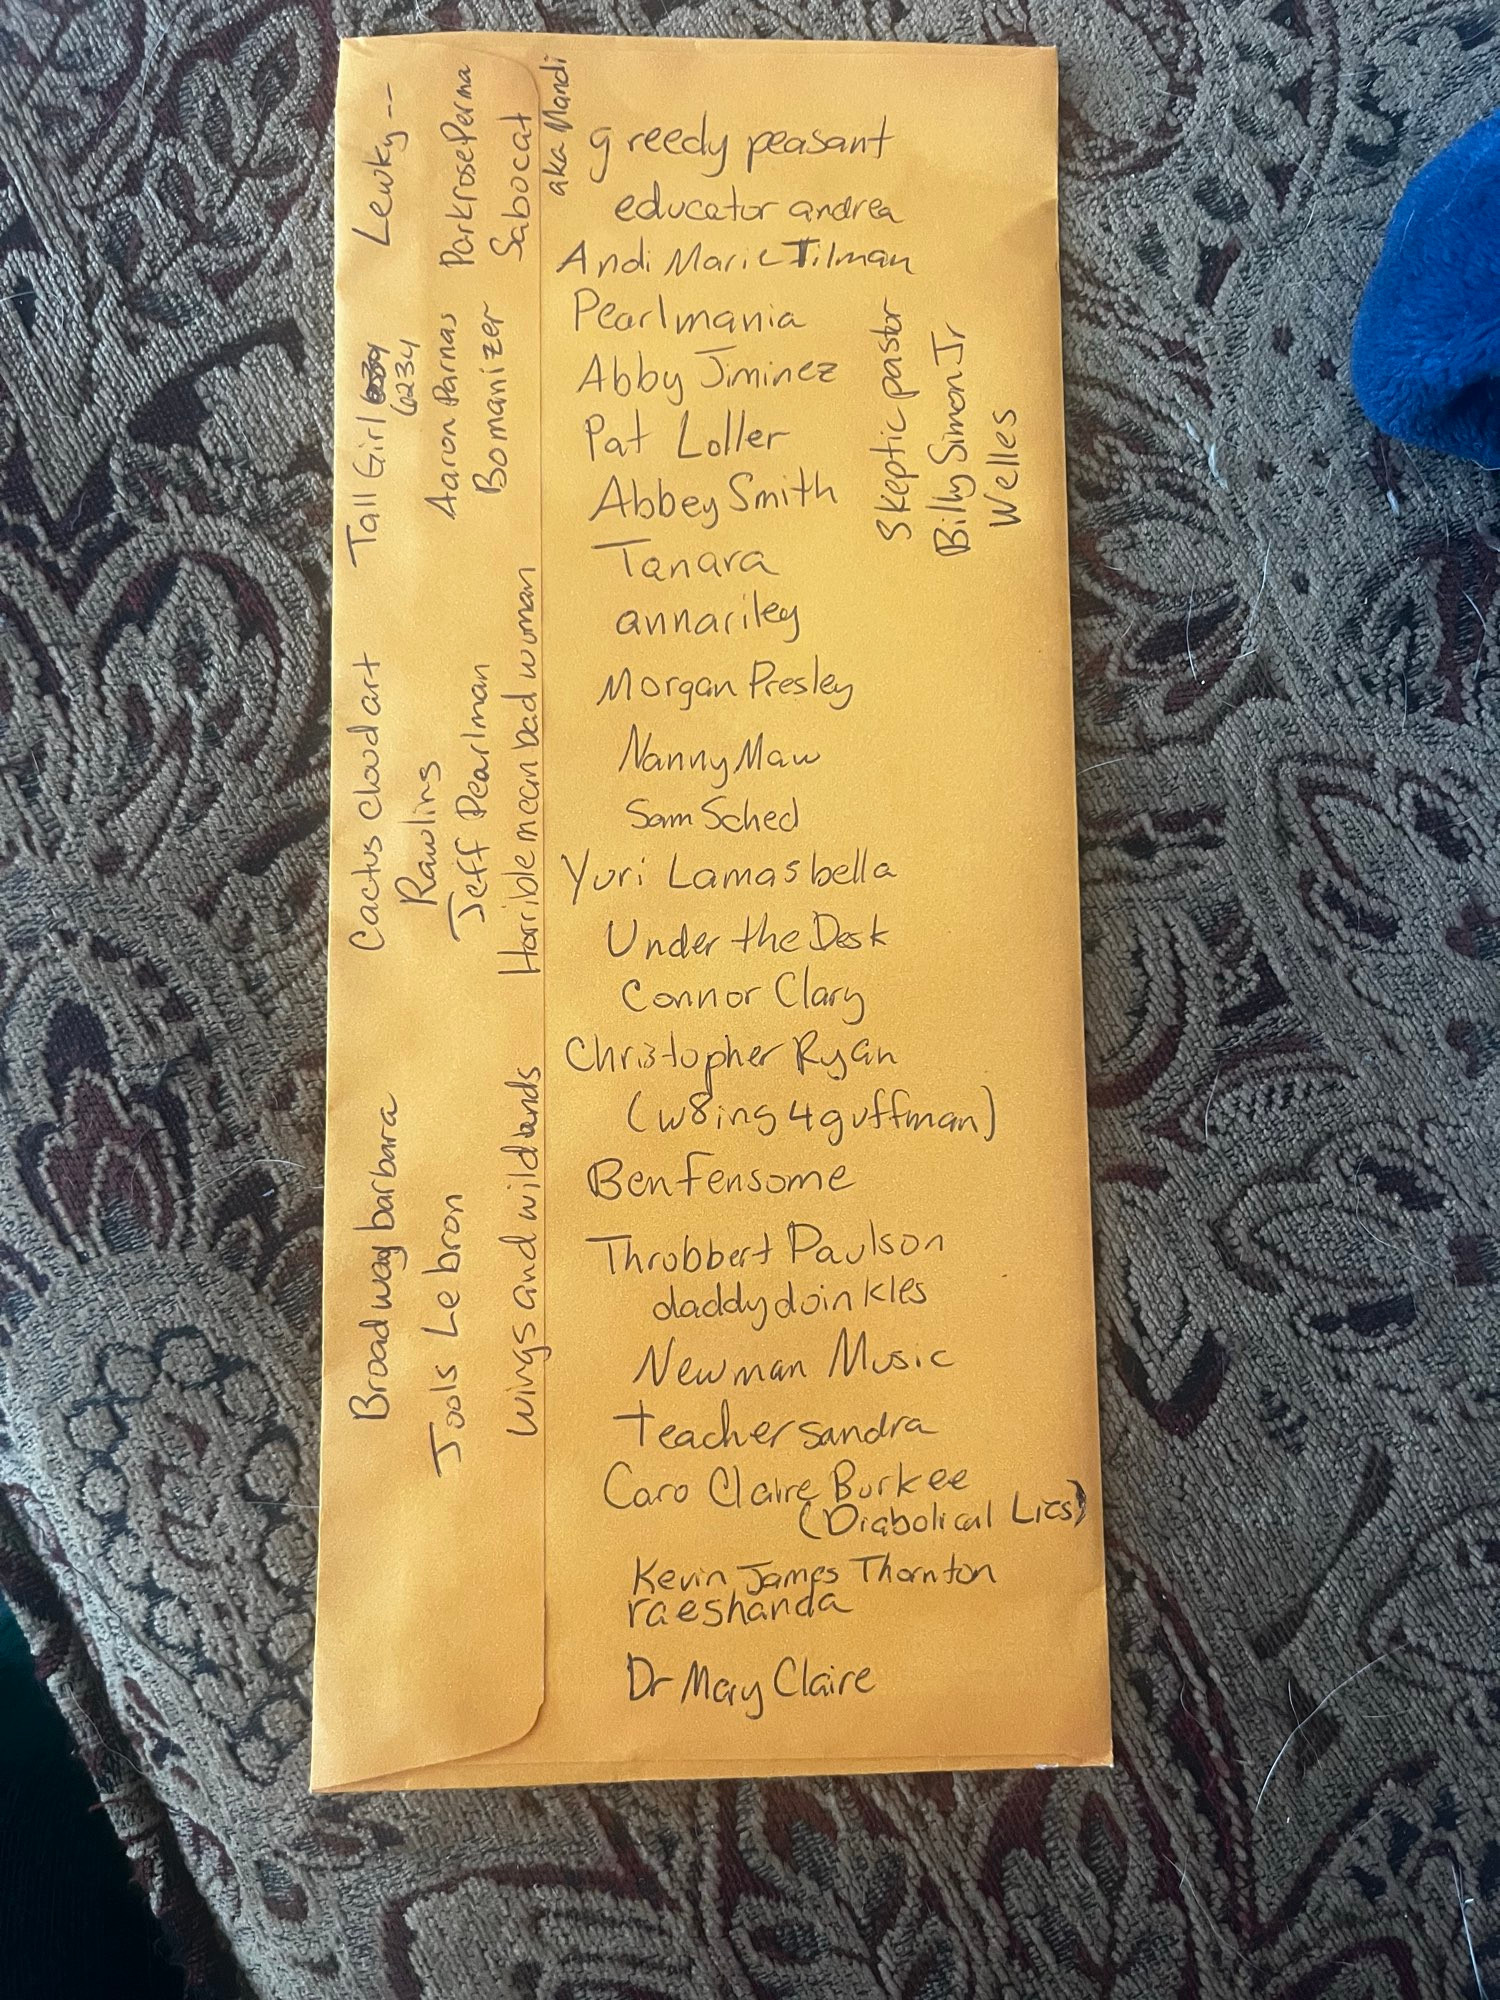 greedy peasant
educator andrea
Andi Marie Tilman
Pearlmania
Abby Jiminez
Pat Loller
Abbey Smith
Tanara
annariley
Morgan Presley
Nanny Maw
Sam Sched
Yuri Lamasbella
Under the Desk
Connor Clary
Christopher Ryan
(w8ing4guffman)
Ben Fensome
Throbbert Paulson
daddydoinkles
Newman Music
teachersandra
Caro Claire Burkee
(Diabolical Lies)
Kevin James Thornton
raeshanda
Dr Mary Claire
Skeptic pastor
Billy Simon Jr
Welles
Lewky--
ParkrosePerma
Sabocat
aka Mandi
Tall Girl
6234
Aaron Parnas
Bomanizer
Cactus cloud art
Rawlins
Jeff Pearlman
Horrible mean bad woman
Broadway barbara
Jools Lebron
wings and wildlands